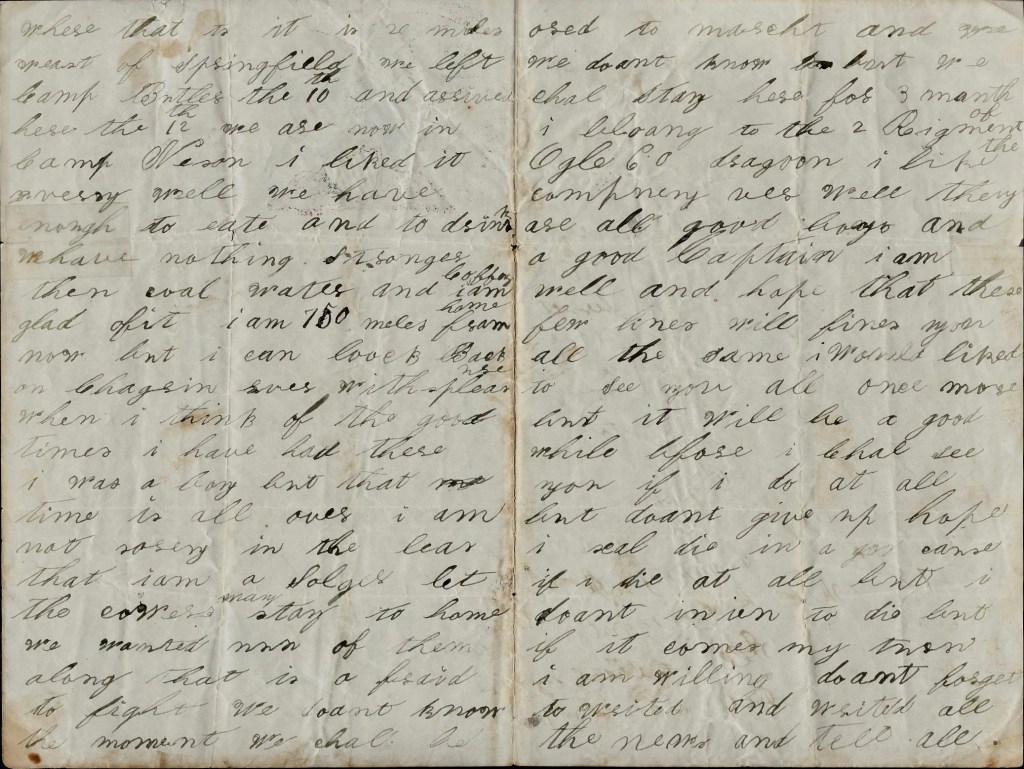 where that is it is 2 miles
weast of Springfield we left
Camp Butler the 10th and arrived
here the 12th we are now in
Camp Neson i liked it
wverry well we have
enough to eate and to drink
we have nothing Stronger
then coal water and Coffey
i am
glad ofit i am 750 meles from home
now but i can loock Back
on Chagrin rver with pleasure
when i think of the good
times i have had there
i was a boy but that
time is all over i am
not sorery in the lear
that i am a Solger let
the cowers may stay to home
we wanted nun of them
along that is a fraid
to fight we doant know
the moment we chal be
ored to marcht and
we doant know but we
chal stay here for 3 manth
i bloang to the 2 Rigment of
Ogle Co dragoon i like the
compnery ver well they
are all good boys and
a good Captain i am
well and hope that these
few lines will fines you
all the same i Would liked
to see you all once more
but it will be a good
while bfore i Chal see
you if i do at all
but doant give up hope
i xal die in a cause
if i die at all but i
doant to die but
if it comes my turn
i am willing doant forget
to writed and writed all
the news and tell all